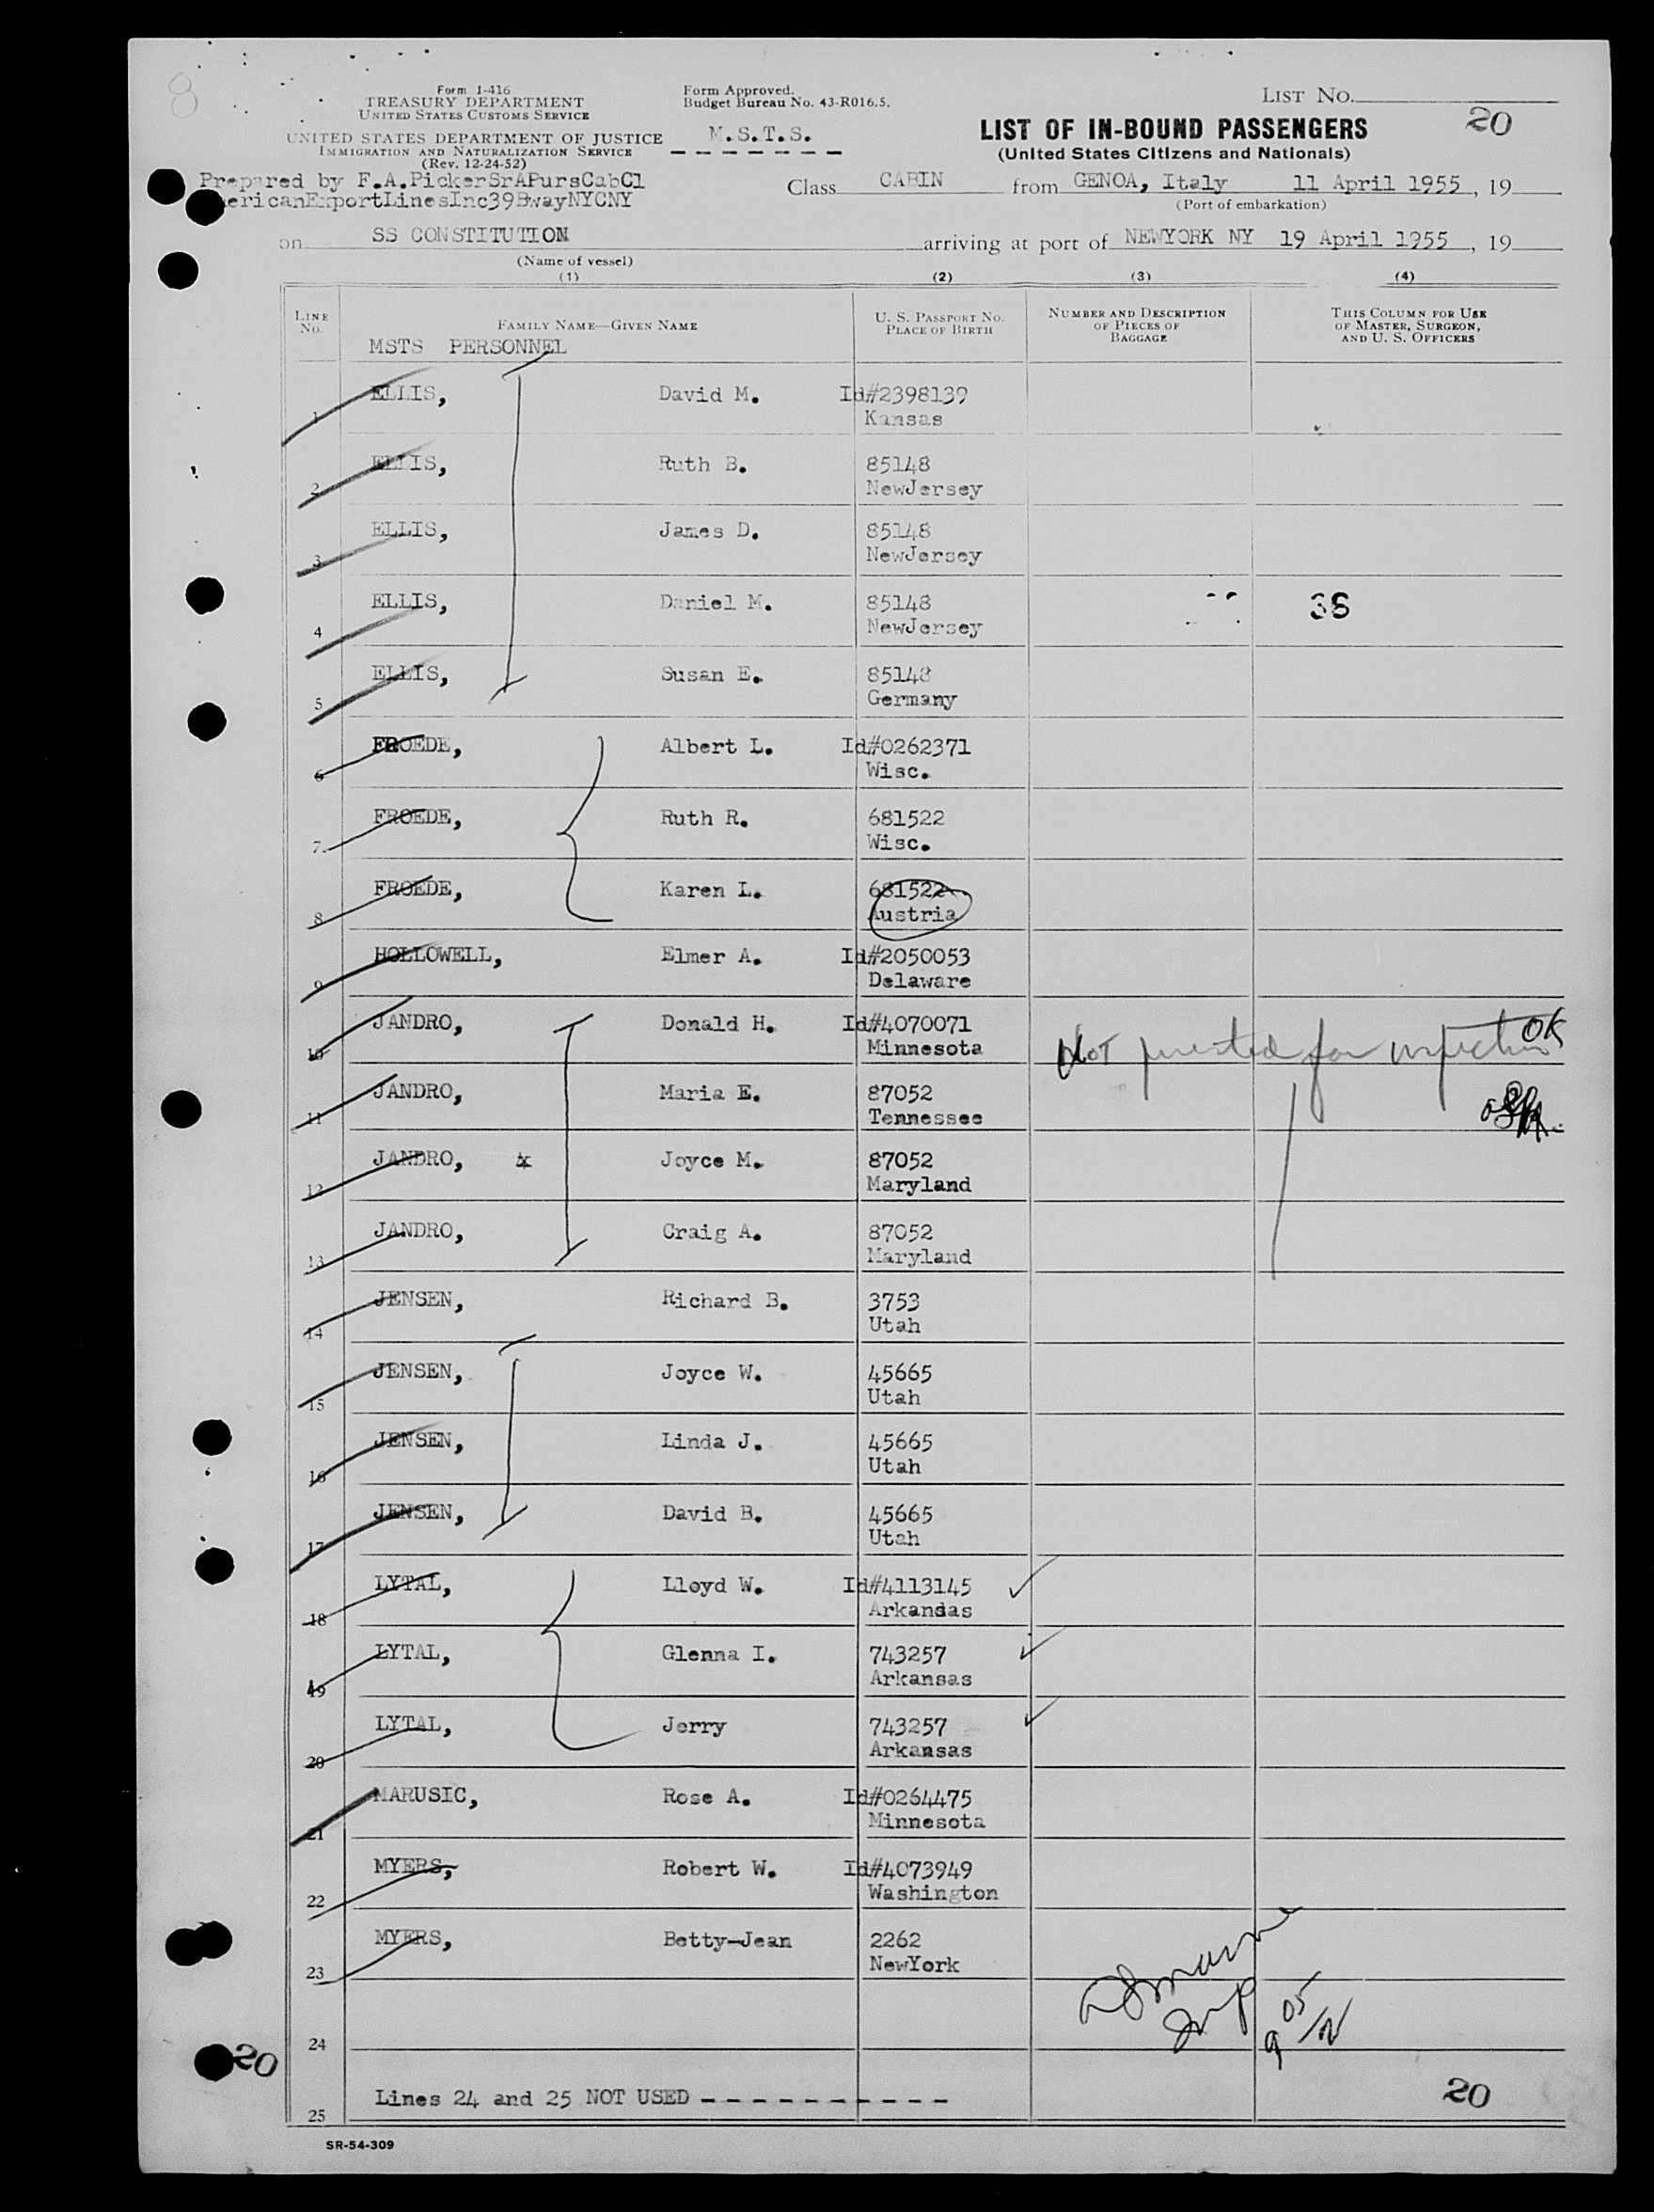 8
Form I-416
TREASURY DEPARTMENT
UNITED STATES CUSTOMS SERVICE
UNITED STATES DEPARTMENT OF JUSTICE
IMMIGRATION AND NATURALIZATION SERVICE
(Rev. 12-24-52)
Form Approved.
Budget Bureau No. 43-R016.5.
M.S.T.S.
LIST NO.
20
LIST OF IN-BOUND PASSENGERS
(United States Citizens and Nationals)
Prepared by F.A.PickerSrAPursCabCl
ericanExportLinesInc39BwayNYCNY
Class CABIN from GENOA, Italy 11 April 1955, 19
(Port of embarkation)
on SS CONSTITUTION arriving at port of NEWYORK NY 19 April 1955, 19
(Name of vessel)
(1) (2) (3) (4)
LINE NO.
FAMILY NAME—GIVEN NAME
U. S. PASSPORT NO.
PLACE OF BIRTH
NUMBER AND DESCRIPTION
OF PIECES OF
BAGGAGE
THIS COLUMN FOR USE
OF MASTER, SURGEON,
AND U. S. OFFICERS
MSTS PERSONNEL
1 ELLIS, David M. Id#2398139
Kansas
2 ELLIS, Ruth B. 85148
NewJersey
3 ELLIS, James D. 85148
NewJersey
4 ELLIS, Daniel M. 85148 36
NewJersey
5 ELLIS, Susan E. 85148
Germany
6 FROEDE, Albert L. Id#0262371
Wisc.
7 FROEDE, Ruth R. 681522
Wisc.
8 FROEDE, Karen L. 681522
Austria
9 HOLLOWELL, Elmer A. Id#2050053
Delaware
10 JANDRO, Donald H. Id#4070071
Minnesota
Not presented for inspection OK
11 JANDRO, Maria E. 87052
Tennessee
12 JANDRO, x Joyce M. 87052
Maryland
13 JANDRO, Craig A. 87052
Maryland
14 JENSEN, Richard B. 3753
Utah
15 JENSEN, Joyce W. 45665
Utah
16 JENSEN, Linda J. 45665
Utah
17 JENSEN, David B. 45665
Utah
18 LYTAL, Lloyd W. Id#4113145
Arkansas
19 LYTAL, Glenna I. 743257
Arkansas
20 LYTAL, Jerry 743257
Arkansas
21 MARUSIC, Rose A. Id#0264475
Minnesota
22 MYERS, Robert W. Id#4073949
Washington
23 MYERS, Betty-Jean 2262
NewYork
24
20
25 Lines 24 and 25 NOT USED - - - - - - - - - -
20
SR-54-309